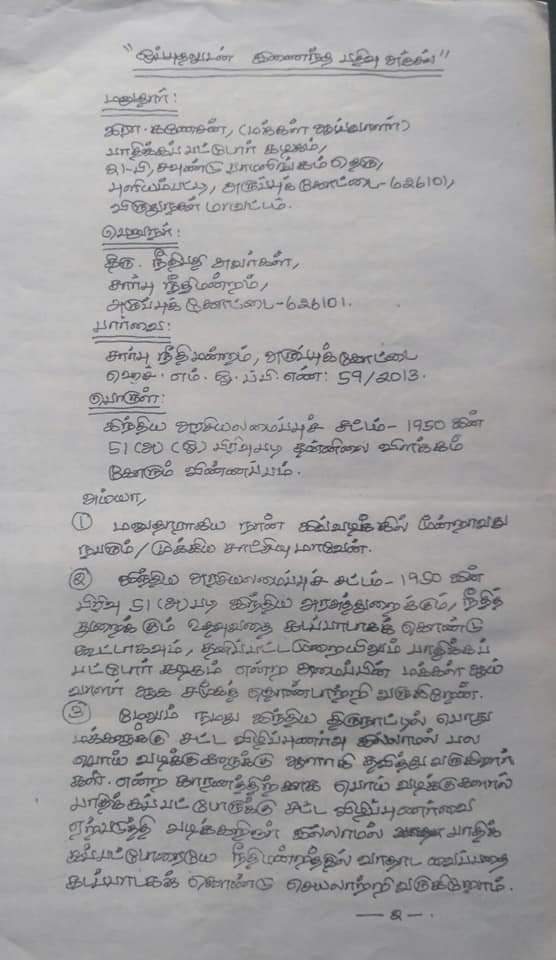 "ஒப்புதலுடன் இணைந்த பதிவு அஞ்சல்"
மனுதாரர்:
இரா. கணேசன், (மக்கள் ஆய்வாளர்)
பாதிக்கப்பட்டோர் கழகம்,
21-பி, சவுண்டு ராமலிங்கம் தெரு,
புளியம்பட்டி, அருப்புக்கோட்டை-626101,
விருதுநகர் மாவட்டம்.
பெறுநர்:
திரு. நீதிபதி அவர்கள்,
சார்பு நீதிமன்றம்,
அருப்புக்கோட்டை-626101.
பார்வை:
சார்பு நீதிமன்றம், அருப்புக்கோட்டை
ஹெச். எம். ஓ. பி. எண்: 59/2013.
பொருள்:
இந்திய அரசியலமைப்புச் சட்டம்- 1950 இன்
51 (அ) (ஓ) பிரிவுபடி தன்னிலை விளக்கம்
கோரும் விண்ணப்பம்.
அய்யா,
① மனுதாராகிய நான் இவ்வழக்கில் மூன்றாவது
நபரும்/முக்கிய சாட்சியுமாவேன்.
② இந்திய அரசியலமைப்புச் சட்டம்- 1950 இன்
பிரிவு 51(அ)படி இந்திய அரசுத்துறைக்கும், நீதித்
துறைக்கும் உதவுவதை கடப்பாடாகக் கொண்டு
கூட்டாகவும், தனிப்பட்டமுறையிலும் பாதிக்கப்
பட்டோர் கழகம் என்ற அமைப்பின் மக்கள் ஆய்
வாளர் ஆக சமூகத் தொண்டாற்றி வருகிறேன்.
③ மேலும் நமது இந்திய திருநாட்டில் பொது
மக்களுக்கு சட்ட விழிப்புணர்வு இல்லாமல் பல
பொய் வழக்குகளுக்கு ஆளாகி தவித்து வருகிறார்
கள். என்ற காரணத்திற்காக பொய் வழக்குகளால்
பாதிக்கப்பட்டோருக்கு சட்ட விழிப்புணர்வை
ஏற்படுத்தி வழக்கறிஞர் இல்லாமல் பாதிக்
கப்பட்டோரையே நீதிமன்றத்தில் வாதாட வைப்பதை
கடப்பாடாகக் கொண்டு செயலாற்றி வருகிறோம்.
— 2 —.